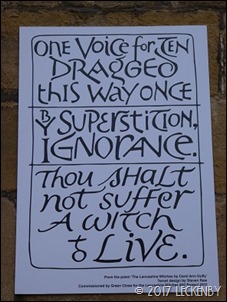 One Voice for Ten
Dragged
this Way Once
By Superstition,
Ignorance.
Thou shalt
not suffer
A witch
to Live.
From the poem 'The Lancashire Witches by Carol Ann Duffy'
Tercet design by Stephen Raw
Commissioned by Green Close for the
© 2017 LECKENBY